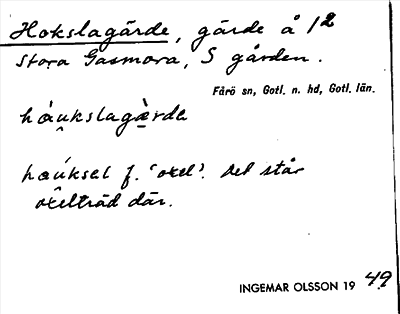 Hokslagärde, gärde å 12
Stora Gasmora, S gården.
Fårö sn, Gotl. n. hd, Gotl. län.
hàu̯kslagæ̀rda
háu̯ksel f. 'oxel'. Det står
oxelträd där.
INGEMAR OLSSON 19 49